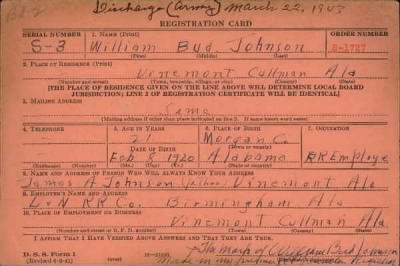 Discharge (Army) March 22, 1943
REGISTRATION CARD
SERIAL NUMBER 1. NAME (Print) ORDER NUMBER
S-3 William Bud Johnson S-1727
(First) (Middle) (Last)
2. PLACE OF RESIDENCE (Print)
Vinemont Cullman Ala
(Number and street) (Town, township, village, or city) (County) (State)
[THE PLACE OF RESIDENCE GIVEN ON THE LINE ABOVE WILL DETERMINE LOCAL BOARD
JURISDICTION; LINE 2 OF REGISTRATION CERTIFICATE WILL BE IDENTICAL]
3. MAILING ADDRESS
Same
[Mailing address if other than place indicated on line 2. If same insert word same]
4. TELEPHONE 5. AGE IN YEARS 6. PLACE OF BIRTH 7. OCCUPATION
21 Morgan C.
DATE OF BIRTH (Town or county)
Feb 8 1920 Alabama RR Employe
(Exchange) (Number) (Mo.) (Day) (Yr.) (State or country)
8. NAME AND ADDRESS OF PERSON WHO WILL ALWAYS KNOW YOUR ADDRESS
James A Johnson (father) Vinemont Ala
9. EMPLOYER'S NAME AND ADDRESS
L & N RR Co. Birmingham Ala
10. PLACE OF EMPLOYMENT OR BUSINESS
Vinemont Cullman Ala
(Number and street or R. F. D. number) (Town) (County) (State)
I AFFIRM THAT I HAVE VERIFIED ABOVE ANSWERS AND THAT THEY ARE TRUE.
The mark of William Bud Johnson
D. S. S. Form 1 Made in my